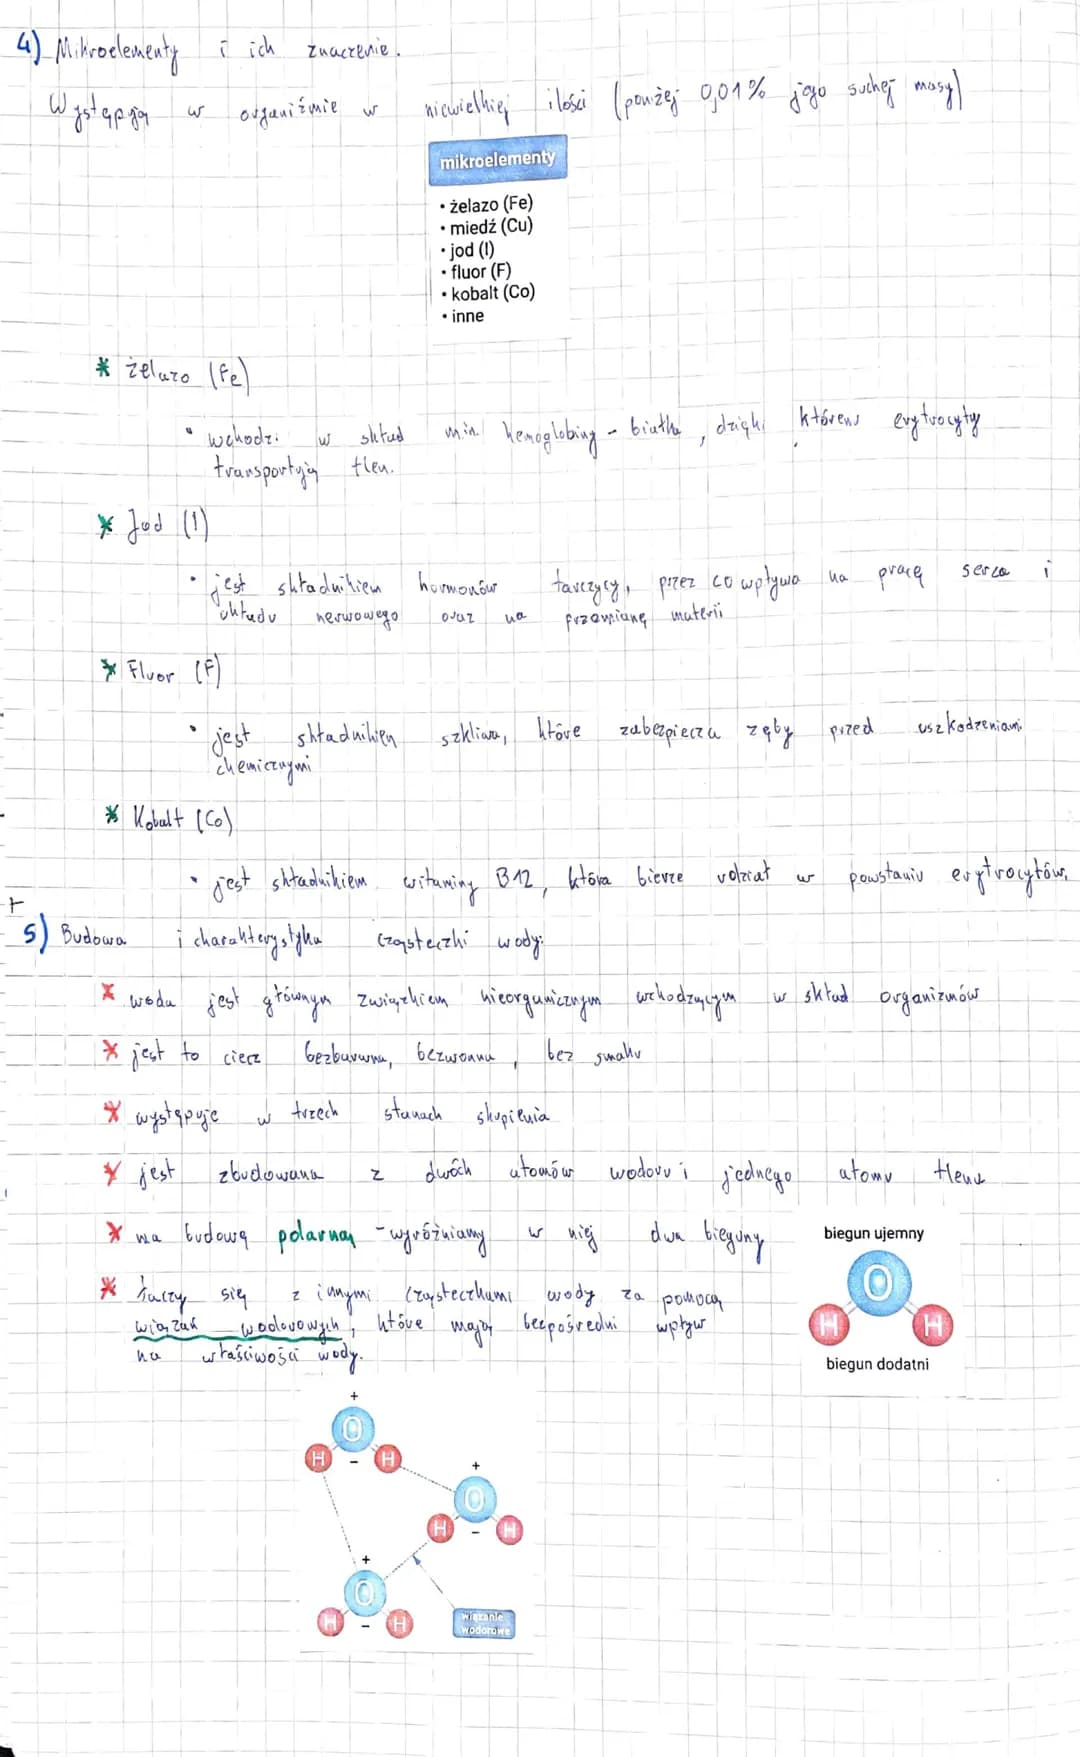 4) Mikroelementy i ich znaczenie.
Występują w organiźmie w niewielkiej ilości (poniżej 0,01% jego suchej masy)
mikroelementy
• żelazo (Fe)
• miedź (Cu)
• jod (I)
• fluor (F)
• kobalt (Co)
• inne
* żelazo (Fe)
• wchodzi w skład min. hemoglobiny - białka, dzięki któremu erytrocyty
transportują tlen.
* Jod (I)
• jest składnikiem hormonów tarczycy, przez co wpływa na pracę serca i
układu nerwowego oraz na przemianę materii
* Fluor (F)
• jest składnikiem szkliwa, które zabezpiecza zęby przed uszkodzeniami
chemicznymi
* Kobalt (Co)
• jest składnikiem witaminy B12, która bierze udział w powstaniu erytrocytów.
5) Budowa i charakterystyka cząsteczki wody:
* woda jest głównym związkiem nieorganicznym wchodzącym w skład organizmów
* jest to ciecz bezbarwna, bezwonna, bez smaku
* występuje w trzech stanach skupienia
* jest zbudowana z dwóch atomów wodoru i jednego atomu tlenu
* ma budowę polarną - wyróżniamy w niej dwa bieguny
* łączy się z innymi cząsteczkami wody za pomocą
wiązań wodorowych, które mają bezpośredni wpływ
na właściwości wody.
biegun ujemny
O
H H
biegun dodatni
+
O
H - H
+
O
H - H
+
O
H - H
wiązanie
wodorowe